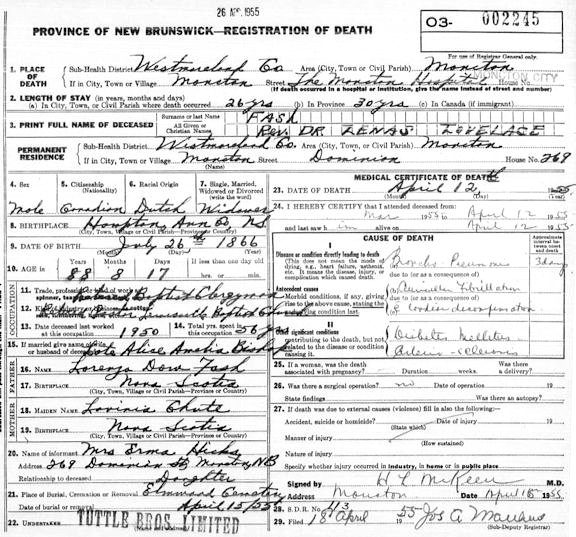 26 APR. 1955
PROVINCE OF NEW BRUNSWICK—REGISTRATION OF DEATH
03- 002245
For use of Registrar General only.
1. PLACE OF DEATH { Sub-Health District Westmorland Co Area (City, Town or Civil Parish) Moncton
If in City, Town or Village Moncton Street The Moncton Hospital House No. MONCTON CITY
(If death occurred in a hospital or institution, give the name instead of street and number)
2. LENGTH OF STAY (in years, months and days)
(a) In City, Town or Civil Parish where death occurred 26 yrs (b) In Province 30 yrs (c) In Canada (if immigrant)
3. PRINT FULL NAME OF DECEASED { Surname or last Name FASH
All Given or Christian Names Rev. DR ZENAS LOVELACE
PERMANENT RESIDENCE { Sub-Health District Westmorland Co. Area (City, Town, or Civil Parish) Moncton
If in City, Town or Village Moncton Dominion House No. 269
(Name)
4. Sex 5. Citizenship (Nationality) 6. Racial Origin 7. Single, Married, Widowed or Divorced (write the word)
Male Canadian Dutch Widower
8. BIRTHPLACE Hampton, Ann Co NS
(City, Town, Village, Civil Parish—Province or Country)
9. DATE OF BIRTH July 26th 1866
10. AGE in Years Months Days If less than one day old
88 8 17 hrs. or min.
OCCUPATION
11. Trade, profession or kind of work as spinner, Retired Baptist Clergyman
12. Baptist Church
13. Date deceased last worked at this occupation 1950 14. Total yrs. spent in this occupation 56 yrs
15. If married give name of wife or husband of deceased Alice Amelia Bishop
FATHER
16. NAME Lorenzo Dow Fash
17. BIRTHPLACE Nova Scotia
(City, Town, Village, Civil Parish—Province or Country)
MOTHER
18. MAIDEN NAME Lavinia Chute
19. BIRTHPLACE Nova Scotia
(City, Town, Village, Civil Parish—Province or Country)
20. Name of informant Mrs Erma Hicks
Address 269 Dominion St, Moncton, NB
Relationship to deceased Daughter
21. Place of Burial, Cremation or Removal Elmwood Cemetery
Date of burial or removal April 15/55
22. UNDERTAKER TUTTLE BROS. LIMITED
MEDICAL CERTIFICATE OF DEATH
23. DATE OF DEATH April 12th 1955
(Month) (Day) (Year)
24. I HEREBY CERTIFY that I attended deceased from
Mar 1955 to April 12 1955
and last saw h im alive on April 12 1955
CAUSE OF DEATH
Approximate interval between onset and death
I
Disease or condition directly leading to death
(This does not mean the mode of dying, e.g., heart failure, asthenia, etc. It means the disease, injury, or complication which caused death.)
Broncho Pneumonia 3 days
due to (or as a consequence of)
Antecedent causes
Morbid conditions, if any, giving rise to the above cause, stating the underlying condition last.
Auricular Fibrillation
due to (or as a consequence of)
Cardiac decompensation
II
Other significant conditions
contributing to the death, but not related to the disease or condition causing it.
Diabetes Mellitus
Arterio-sclerosis
25. If a woman, was the death associated with pregnancy? Duration weeks. Was there a delivery?
26. Was there a surgical operation? no Date of operation 19
State findings Was there an autopsy?
27. If death was due to external causes (violence) fill in also the following:—
Accident, suicide or homicide? Date of injury 19
(State which)
Manner of injury
(How sustained)
Nature of injury
Specify whether injury occurred in industry, in home or in public place
Signed by H L McKeen M.D.
Address Moncton Date April 15 1955
28. S.D.R. No. 413
29. Filed 18 April 1955 Jos A
(Sub-Deputy Registrar)